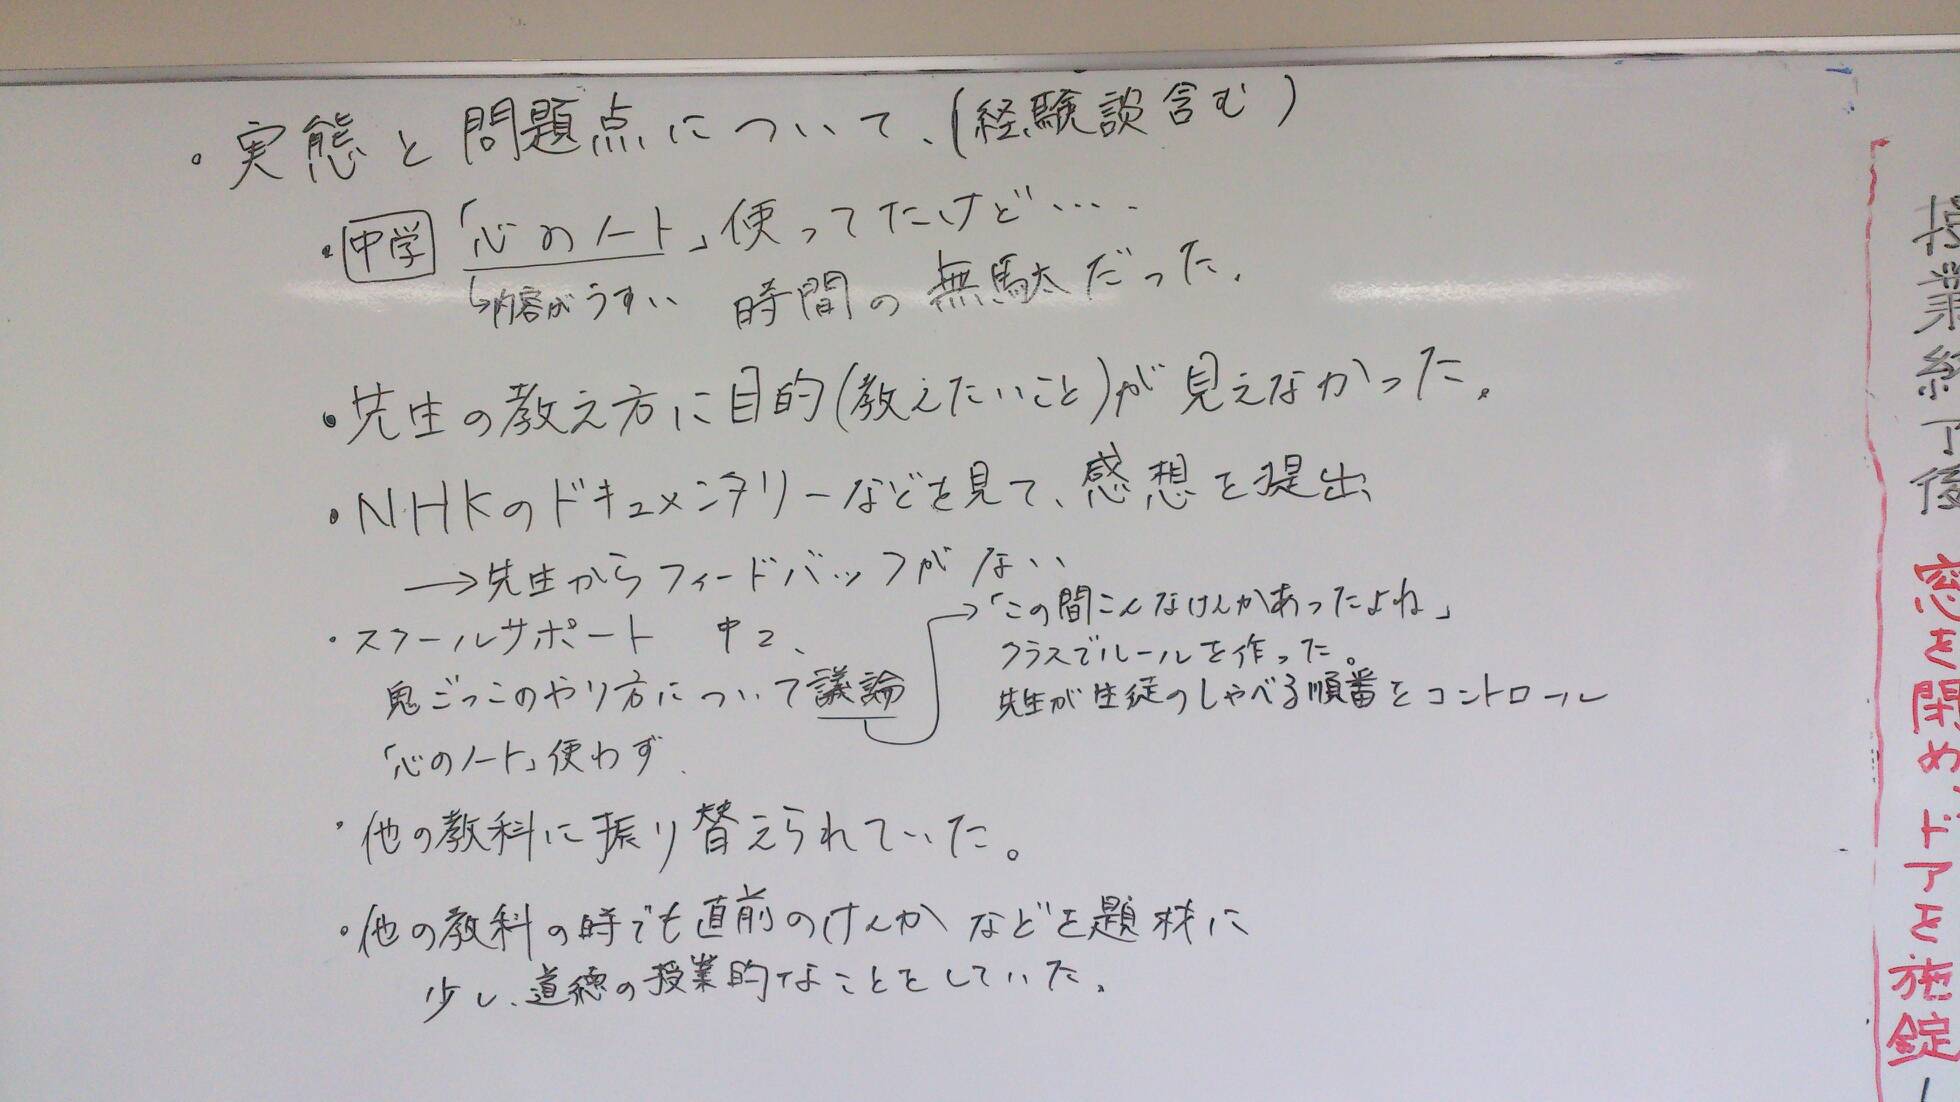 ・実態と問題点について、(経験談含む)
・中学「心のノート」使ってたけど‥‥
↳内容がうすい 時間の無駄だった。
・先生の教え方に目的(教えたいこと)が見えなかった。
・NHKのドキュメンタリーなどを見て、感想を提出
→先生からフィードバックがない
・スクールサポート 中2、
鬼ごっこのやり方について議論
「心のノート」使わず
→「この間こんなけんかあったよね」
クラスでルールを作った。
先生が生徒のしゃべる順番をコントロール
・他の教科に振り替えられていた。
・他の教科の時でも直前のけんかなどを題材に
少し、道徳の授業的なことをしていた。
授業終了後 窓を閉め ドアを施錠し